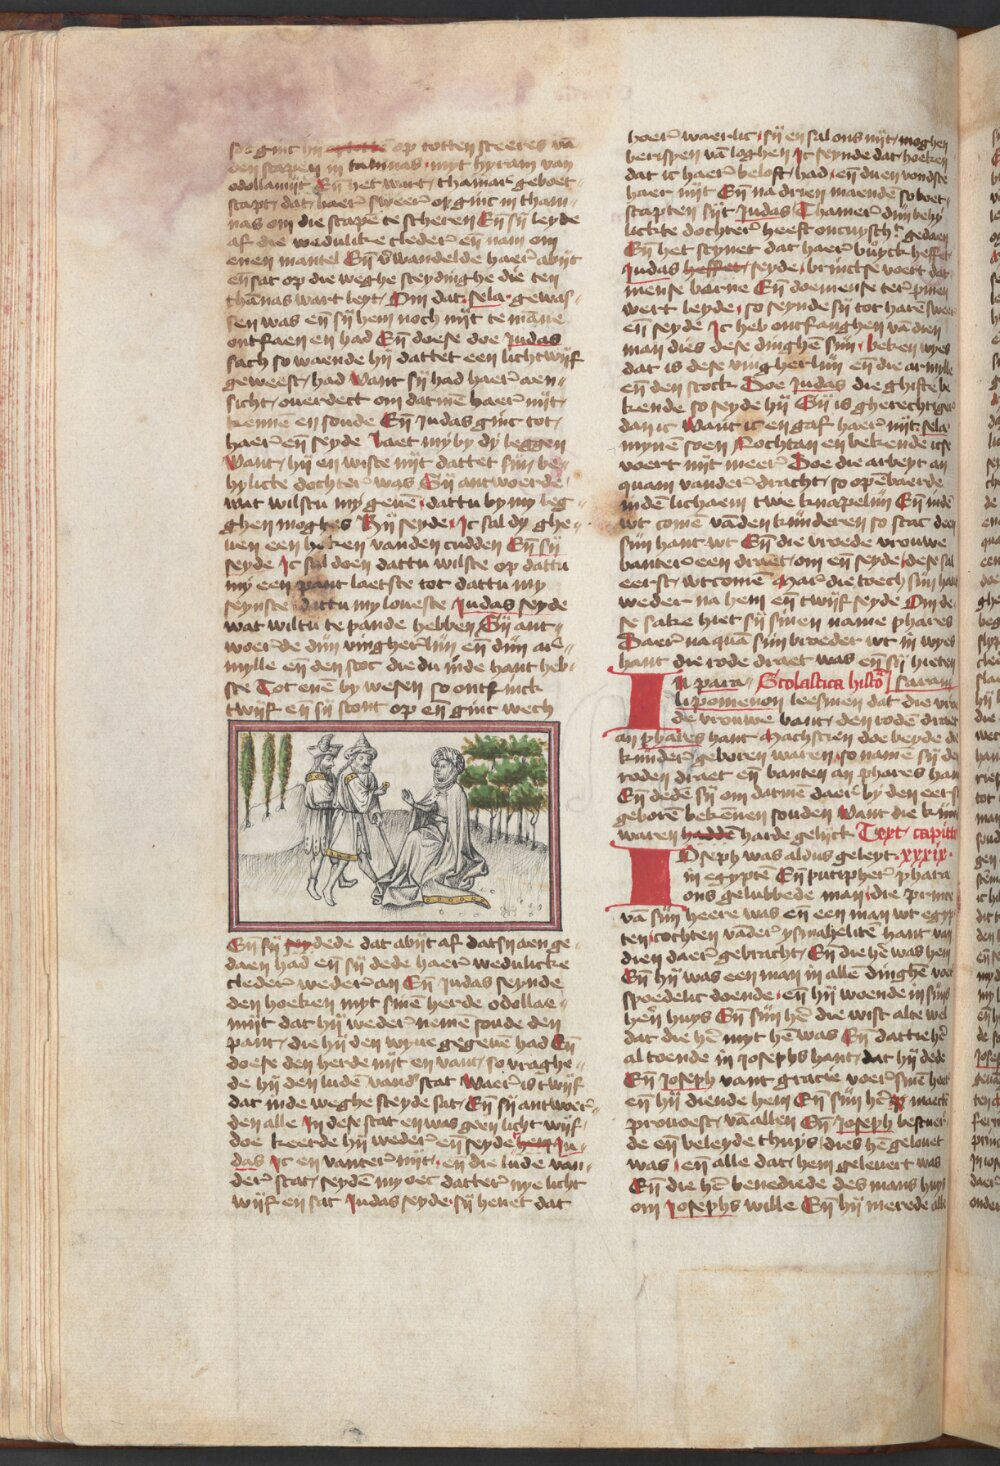 so ginc hij op totten steeres vā
den scapen in tamnas myt hyram van
odollamijt Eñ het wart thamar geboet
scapt dat haer sweer op ginc in tham
nas om die scapē te scheren Eñ sy leyde
af die wedulicke cleder eñ nam om
enen mantel Eñ verwandelde haer abijt
eñ sat op die weghe steydinghe die ten
thānas wart leyt Om dat sela gewas
sen was eñ sy hem noch nijt te mānē
ontfaen en had Eñ doese doe Judas
sach so waende hij dattet een licht wijf
geweest had Want sy had haer aen
sicht ouerdect om datmē haer nijt
kennen en soude Eñ Judas ginc tot
haer eñ seyde Laet my by dy leggen
Want hij en wiste nijt dattet sijn be
hylicke dochter was Sij antwoerde
wat wilstu my geuē dattu by my leg
ghen moghes Hij seyde Ic sal dy ghe
uen een hoeken vanden cudden Eñ sij
seyde Ic sal doen dattu wilste op dattu
my een pant laetste tot dattu my
seynste dattu my loueste Judas seyde
wat wiltu te pande hebben Sij ant
woerde dijn vingherlijn eñ dijn ar
mylle eñ den stoc die du inde hant heb
ste Tot enē by wesen so ontfinck
twijf eñ sij stont op eñ ginc wech
Eñ sij dede dat abijt af dat sij aen ge
daen had eñ sij dede haer wedulicke
cleder weder an Eñ Judas seynde
den hoeken myt sinē herde odollae
mijt dat hij weder nemē soude den
pant die hij den wyue gegeuē had Eñ
doese den herde nijt en vant so vraghe
de hij den ludē vander stat Waer is twijf
dat inde weghe steyde sat Eñ sij antwoer
den alle In dese stat en was geen licht wijf
doe keerde hij weder eñ seyde Ju
das Ic en vanter nijt eñ die lude van
der stat seydē my oec datter nye licht
wijf en sat Judas seyde sij heuet dat
hoer waerlic sij en sal ons nijt moghen
berispen vā loghen Ic seynde dat hoeken
dat ic haer beloft had eñ du en vondste
haer nijt Eñ na drien maendē so boet
scapten sijt Judas Thamer dijn behy
lickte dochter heeft oncuysch gedaen
Eñ het scynet dat haer buyck heffet
Judas seyde brinctse voert dat
mense barne Eñ doemense ter pinen
wert leyde so seynde sij tot harē sweer
eñ seyde Ic heb ontfanghen vā dien
man dies dese dinghē sijn beken wyes
dat is dese vingherlijn eñ die armylle
eñ den stock Doe Judas die ghifte be
kende so seyde hij Sij is gherechtiger
dan ic Want ic en gaf haer nijt sela
mynē soen Nochtan en bekende icse
voert nijt meer Doe die arbeyt an
quam vander dracht so opēbaerde
inden lichaem twe knapelijn Eñ inde
wt comē vāden kijnderen so stac deen
sijn hant wt Eñ die vroede vrouwe
banter een draet om eñ seyde dese sal
eerst wtcomē Mar die toech sijn hant
weder na hem eñ twijf seyde Om de
se sake hiet sij sinen name phares
Daer na quā sijn broeder wt in wyes
hant die rode draet was eñ sij hieten
In para Scolastica histo saram
lipomenon leesmen dat die vroe
de vrouwe bant den rodē draet
an phares hant Machscien doe beyde de
kijnder geboren waren so namē sij de
roden draet eñ banten an phares hant
Eñ dedē sij om datmē daer by den eerst
geborē bekēnen souden Want die kijnder
waren harde gelijck Text capittel
Joseph was aldus geleyt xxxix
in egyptē Eñ putipher phara
ons gelubbede man die prince
vā sijn heere was eñ een man wt egyp
ten cochten vāder ysmahelitē hant van
dien daer gebracht Eñ die hē was hem
Eñ hij was een man in allē dinghē voer
spoedelic doende eñ hij woende in sijns
herē huys Eñ sijn hē die wist alte wel
dat die hē myt hē was Eñ dattie hē
al toende in Josephs hant dat hij dede
Eñ Joseph vant gracie voer sinē heer
eñ hij diende hem Eñ sijn hē maect
prouoest vā allen Eñ Joseph bestuer
de eñ beleyde thuys dies hē gelouet
was eñ alle dat hem geleuert was
Eñ die hē benediede des mans huys
om Josephs wille Eñ hij merede alle